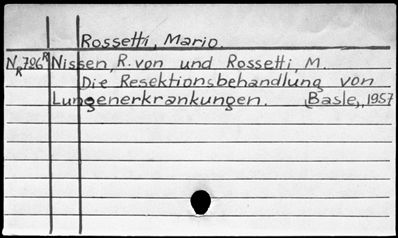 Rossetti, Mario.
NR706R Nissen, R. von und Rossetti, M.
Die Resektionsbehandlung von
Lungenerkrankungen. (Basle), 1957